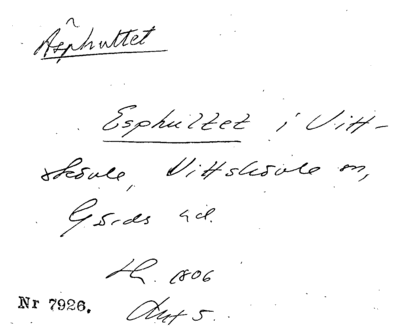 Äsphultet
Esphultet i Vitt-
sköule, Vittsköule sn,
Gärds hd.
1806
Akt 5.
Nr 7926.